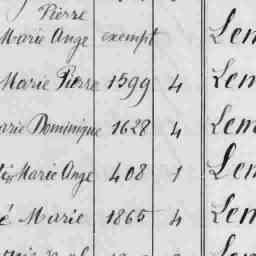 Pierre
Marie Ange exempt Lem
Marie Pierre 1599 4 Lem
arie Dominique 1628 4 Lem
Marie Ange 408 1 Lem
é Marie 1865 4 Lem